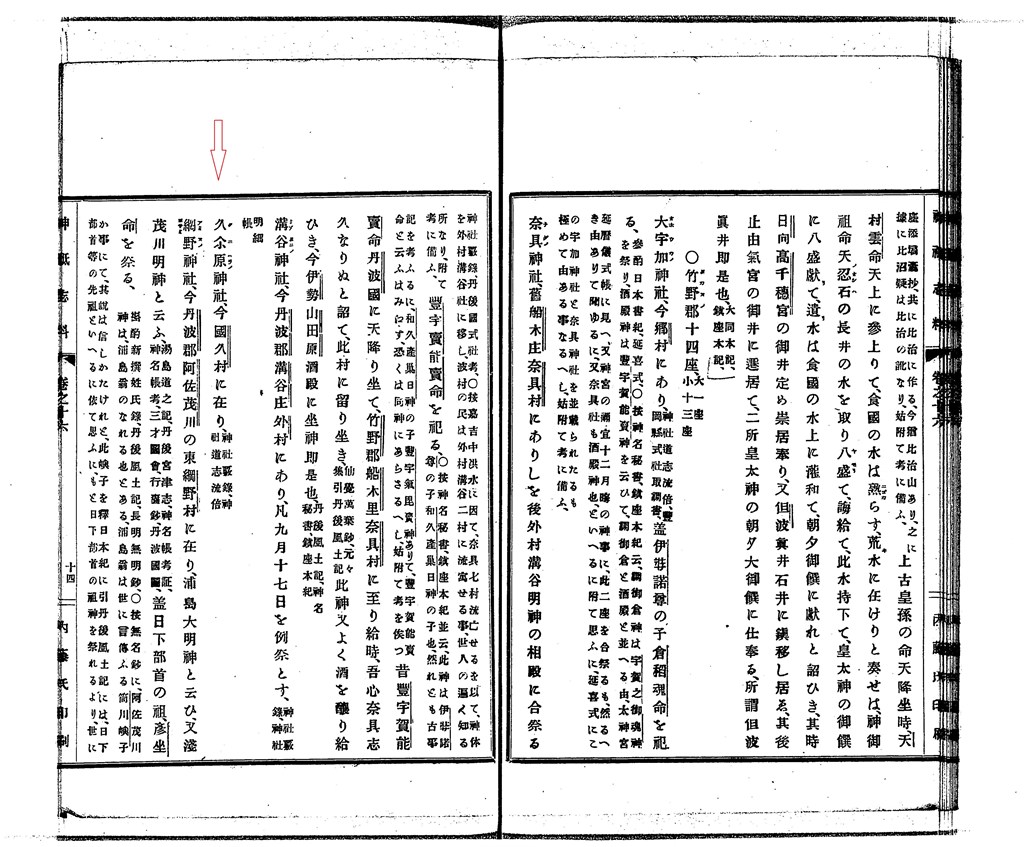 座添壒囊抄共に比治に作る、今當比治山あり、之に
據に比沼疑は比治の訛なり、姑附て考に備ふ、
上古皇孫の命天降坐時、天
村雲命天上に參上りて、食國の水は熟らす、荒水に在けりと奏せは、神御
祖命天忍石の長井の水を取り八盛て、誨給て、此水持下て、皇太神の御饌
に八盛獻て、遺水は食國の水上に灌和て、朝夕御饌に獻れと詔ひき、其時
日向高千穗宮の御井定め崇居奉り、又但波眞井石井に鎭移し居ゑ、其後
止由氣宮の御井に遷居て、二所皇太神の朝夕大御饌に仕奉る、所謂但波
眞井即是也、大同本記、鎭座本記、
〇竹野郡十四座、大一座 小十三座
大宇加神社、今鄕村にあり、神社道志流倍、豐岡縣式社取調書、蓋伊弉諾尊の子倉稻魂命を祀
る、參酌日本書紀延喜式、〇按神名秘書、鎭座本紀云、調御倉神は宇賀之御魂神
を祭り、酒殿神は豐宇賀能賣神を云ひて、調御倉と酒殿と並へる由太神宮
延曆儀式帳に見へ、又神宮の禰宜十二月晦の神事に、此二座を合祭る、然るへ
き由ありて聞ゆるに、又奈具社も酒殿神也といへるに附て思ふに延喜式にこ
の宇加神社と奈具神社を並載られたるも
極めて由ある事なるへし、姑附て考に備ふ、
奈具神社、舊船木庄奈具村にありしを後外村溝谷明神の相殿に合祭る
神社覈錄丹後國式社考、〇按嘉吉中洪水に因て、奈具七村流亡せるを以て、神体
を外村溝谷社に移し、波村の民は外村溝谷二村に流寓せる事、世人の遍く知る
所なり、附て考に備ふ、
豐宇賀能賣命を祀る、〇按神名秘書、鎭座本紀並云、此神は伊弉諾
尊の子和久產巢日神の子也、然れとも古事
記を考ふるに、和久產巢日神の子豐宇氣毘賣神ありて、豐宇賀能賣
命と云ふはみ江す、恐くは同神にあらさるへし、姑附て考を俟つ
昔豐宇賀能
賣命丹波國に天降り坐て、竹野郡船木里奈具村に至り給時、吾心奈具志
久なりぬと詔て、此村に留り坐き、仙覺萬葉鈔、元々集引丹後風土記、此神又よく酒を釀り給
ひき、今伊勢山田原酒殿に坐神即是也、丹後風土記、神名秘書鎭座本紀
溝谷神社、今丹波郡溝谷庄外村にあり、凡九月十七日を例祭とす、神社覈錄神社
明細帳
久尒原神社、今國久村に在り、神社覈錄、神社道志流倍
網野神社、今丹波郡阿佐茂川の東綱野村に在り、浦島大明神と云ひ、又淺
茂川明神と云ふ、湯島道之記、丹後宮津志、神名帳考證、神名帳考、三才圖會、行囊鈔丹波國圖、蓋日下部首の祖、彥坐
命を祭る、參酌新撰姓氏錄、丹後風土記、長明無明鈔、〇按無名鈔に阿佐茂川
神は、浦島翁のなれる也とある、浦島翁は世に言傳ふる筒川嶼子
か事にて、其說は信しかたけれと、此嶼子を釋日本紀に引丹後風土記には、日下
部首等の先祖といへるに依て思ふに、もと日下部首の祖神を祭れるより、世に
神祇志料
卷之十六
十四
內藤氏印刷